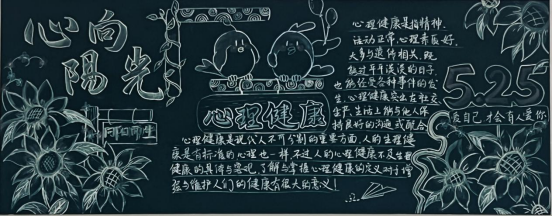 心向
陽光
向阳而生
心理健康
心理健康是指精神、
活动正常、心理素质好。
大多与遗传相关,既
能过平平淡淡的日子,
也能经受各种事件的发
生。心理健康突出在社交、
生产、生活上能与他人保
持良好的沟通或配合
心理健康是现代人不可分割的重要方面,人的生理健
康是有标准的,心理也一样,不过人的心理健康不及生理
健康的具体与客观。了解与掌握心理健康的定义对于增
强与维护人们的健康有很大的意义!
5.25
爱自己 才会有人爱你